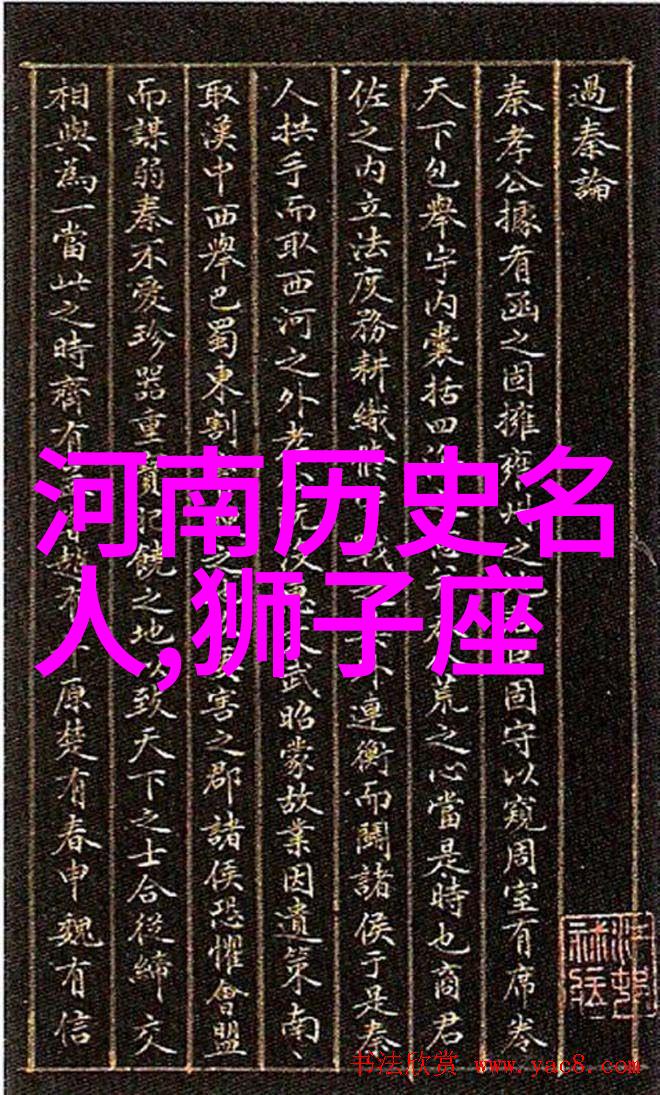 過秦論
秦孝公據肴函之固擁雍州之固守以窺周室有席卷
天下包舉宇内囊括四荒之心當是時也商君
佐之内立法度務耕織外連衡而鬭諸侯于是秦
人拱手而取西河之外武昭蒙故業因遺策南、
取漢中西舉巴蜀東割害之郡諸侯恐懼會盟
而謀弱秦不愛珍器重寶饒之地以致天下之士合從締交
相與為一當此之時齊有原楚有春申魏有信
河南历史名
人,狮子座
书法欣赏 www.yac8.com